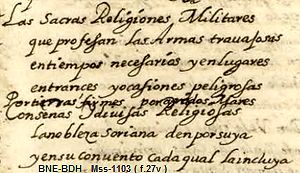 Las Sacras Religiones Militares
que profesan las Armas travajosas
entiempos necesarios yenlugares
entrances yocasiones peligrosas
Portierras firmes por Mares
Consenas Religiosas
Lanobleza Soriana denporsuya
yensuconvento Cadaqual laincluya
BNE-BDH Mss-1103 ( f.27v )